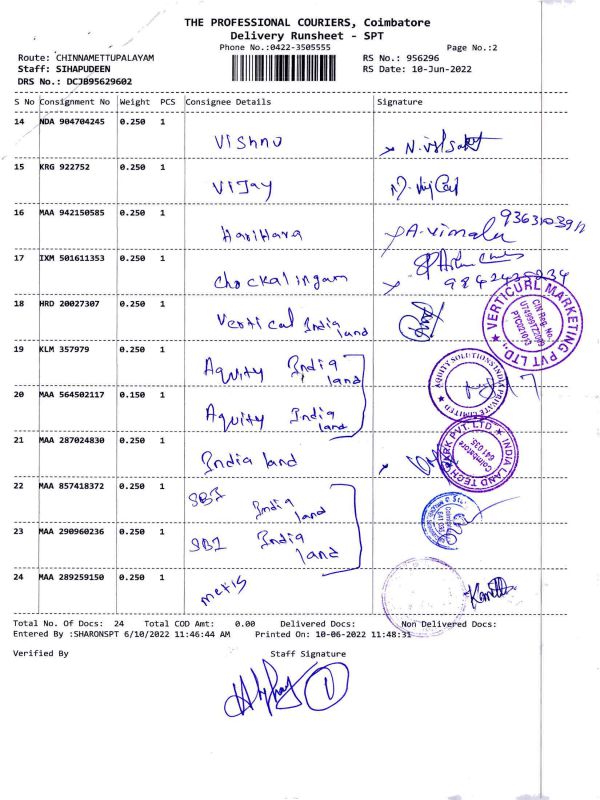 THE PROFESSIONAL COURIERS, Coimbatore
Delivery Runsheet - SPT
Phone No.:0422-3505555 Page No.:2
Route: CHINNAMETTUPALAYAM RS No.: 956296
Staff: SIHAPUDEEN RS Date: 10-Jun-2022
DRS No.: DCJB95629602
S No Consignment No Weight PCS Consignee Details Signature
14 NDA 904704245 0.250 1
Vishnu
15 KRG 922752 0.250 1
Vijay
16 MAA 942150585 0.250 1
Harihara A.Vimala
17 IXM 501611353 0.250 1
Chockalingam
18 HRD 20027307 0.250 1
Vertical India land
VERTICURL MARKETING PVT LTD.,
CIN Reg. No.
19 KLM 357979 0.250 1
Aquity India land
AQUITY SOLUTIONS INDIA PRIVATE LIMITED
20 MAA 564502117 0.150 1
Aquity India land
21 MAA 287024830 0.250 1
India land
INDIA LAND TECH PARK PVT. LTD
Coimbatore
641 035
22 MAA 857418372 0.250 1
SBI India land
23 MAA 290960236 0.250 1
SBI India land
24 MAA 289259150 0.250 1
metis
Total No. Of Docs: 24 Total COD Amt: 0.00 Delivered Docs: Non Delivered Docs:
Entered By :SHARONSPT 6/10/2022 11:46:44 AM Printed On: 10-06-2022 11:48:31
Verified By Staff Signature